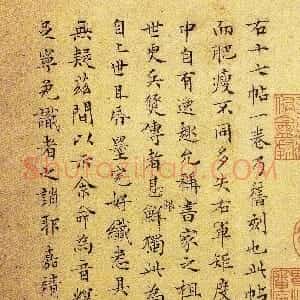 右十七帖一卷乃舊刻也此帖
而肥瘦不同多失右軍矩度
中自有逸趣允稱書家之祖
世更兵燹傳者息鮮獨此為
自上世且唇墨完好纖悉具
無疑茲間以示余命為音釋
足寧免識者之誚耶嘉靖
Shufazidian.com